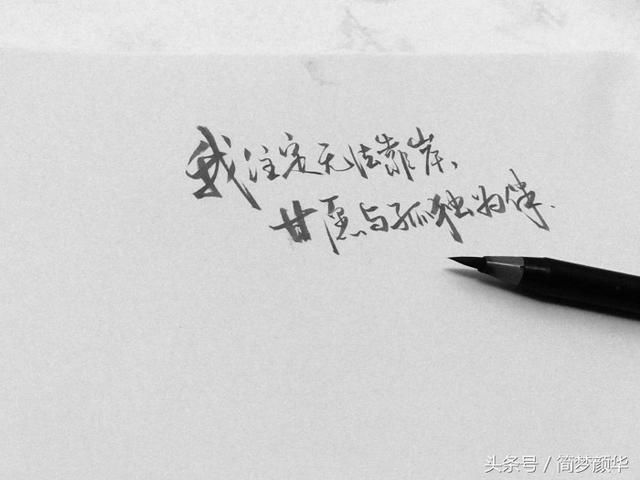 我注定无法靠岸、
甘愿与孤独为伴.
头条号／简梦颜华